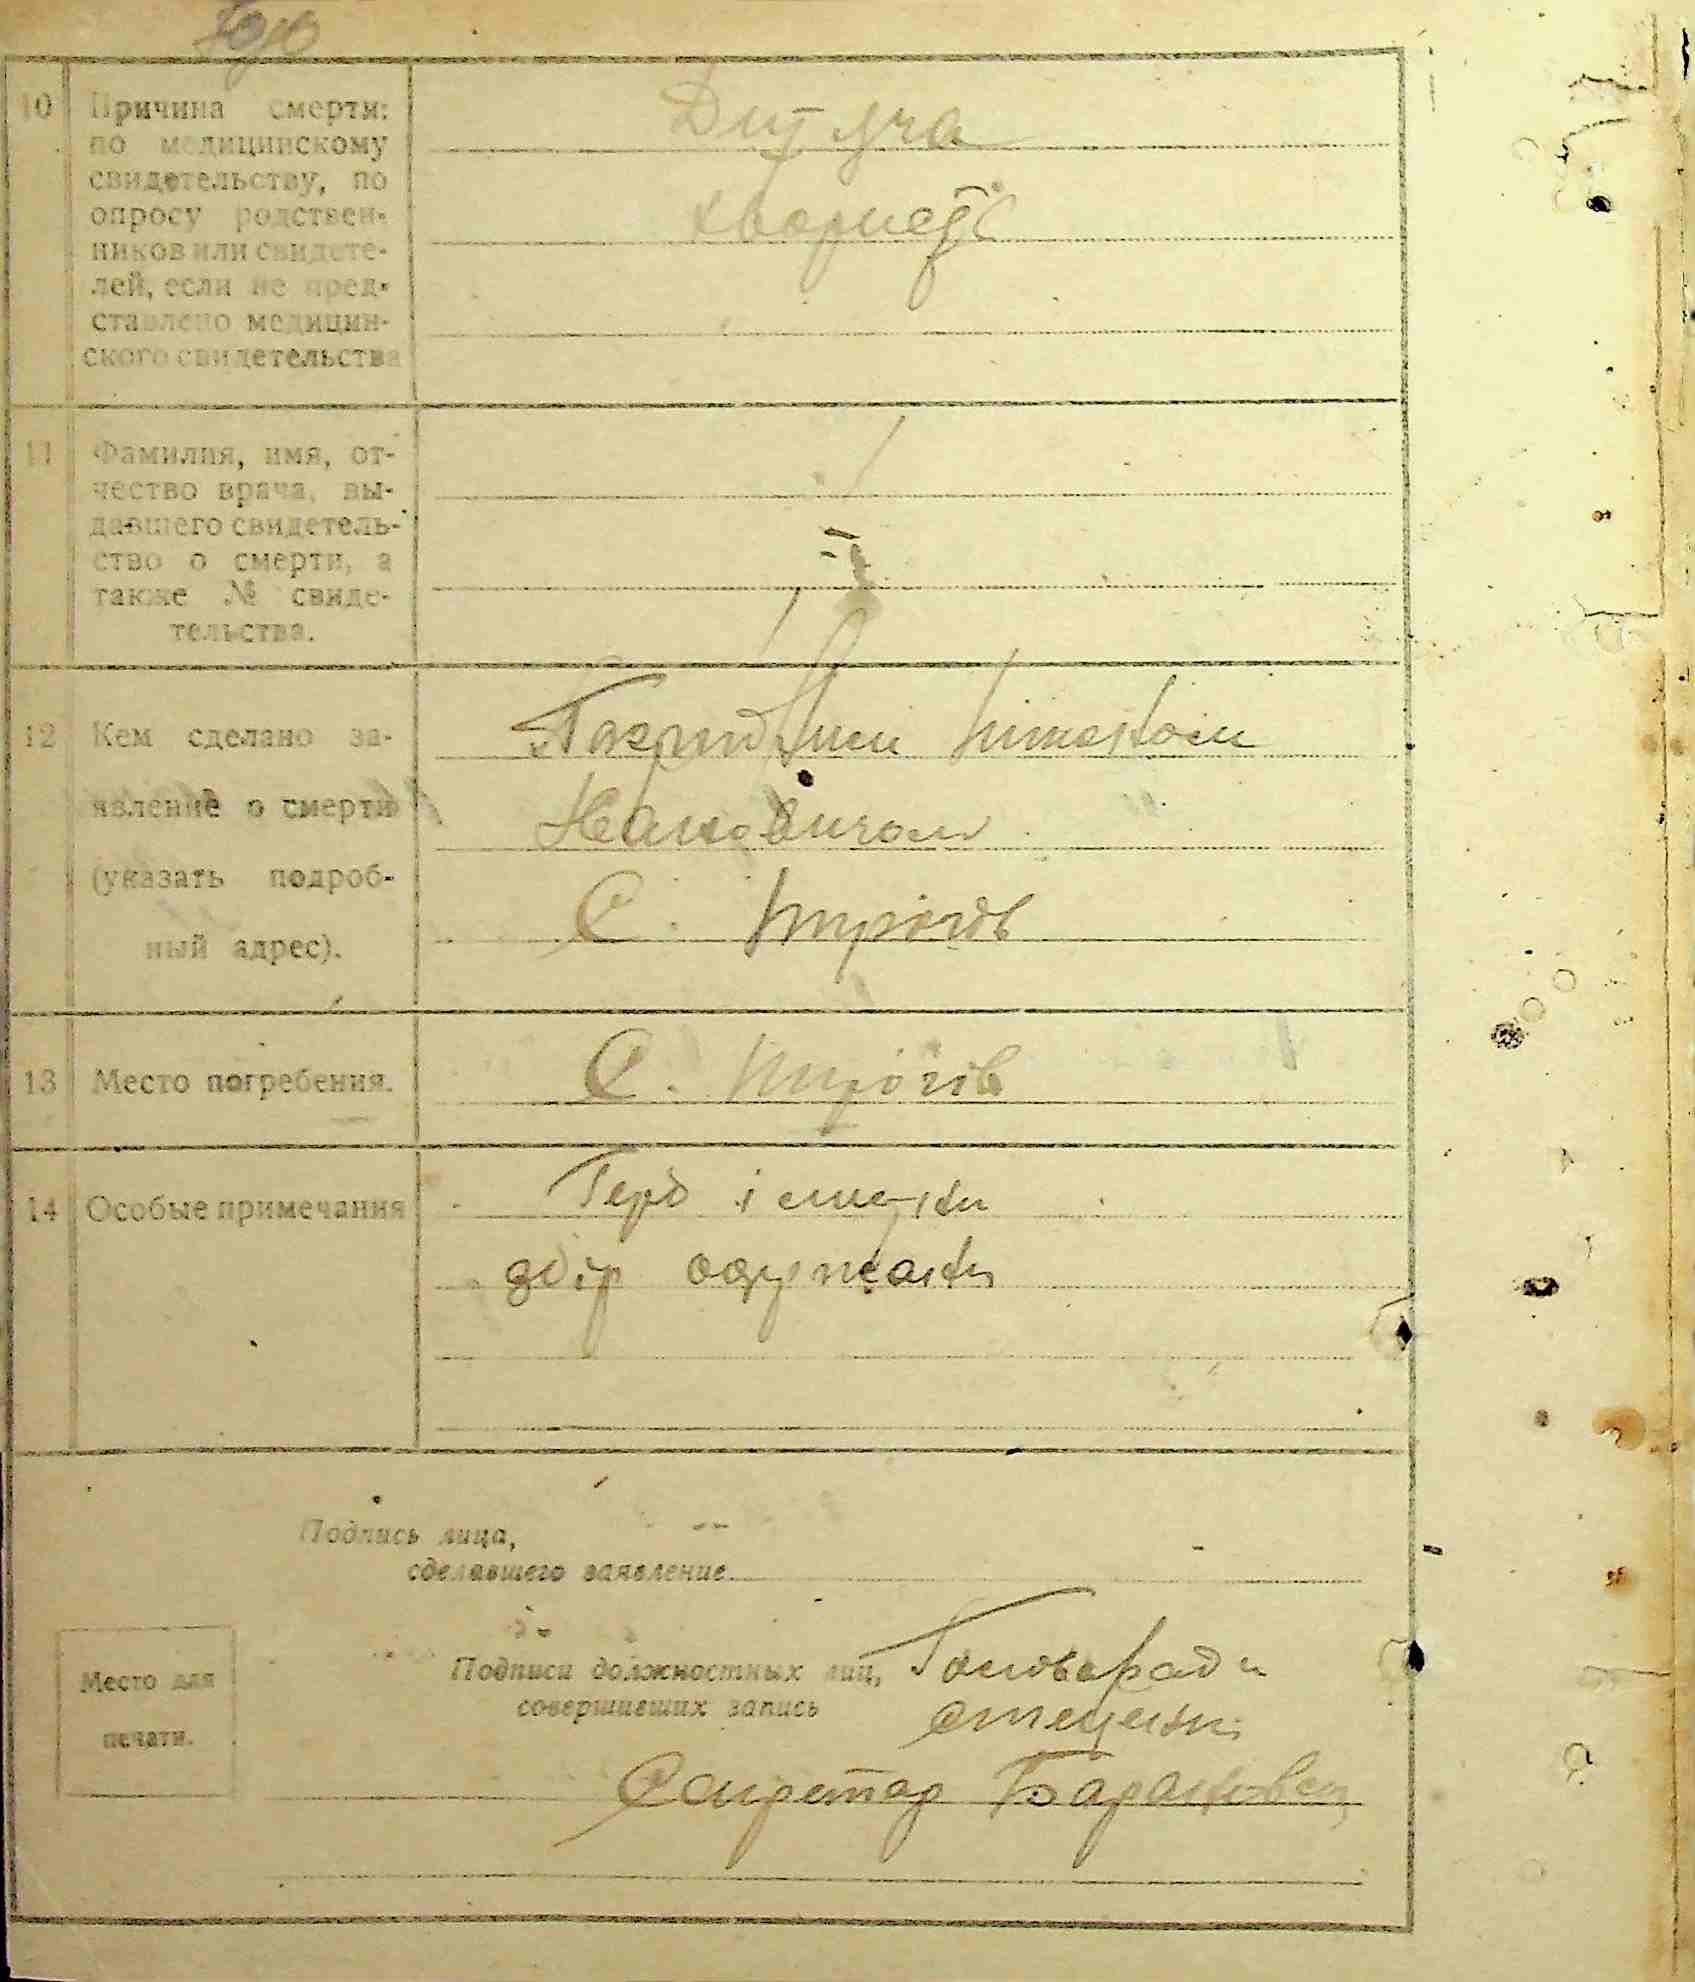 10 Причина смерти:
по медицинскому
свидетельству, по
опросу родствен-
ников или свидете-
лей, если не пред-
ставлено медицин-
ского свидетельства
Дитяча
хворість
11 Фамилия, имя, от-
чество врача, вы-
давшего свидетель-
ство о смерти, а
также № свиде-
тельства.
12 Кем сделано за-
явление о смерти
(указать подроб-
ный адрес).
Ивановичом
С. Пирогів
13 Место погребения.
С. Пирогів
14 Особые примечания
Герб і
збір одержан
Подпись лица,
сделавшего заявление
Место для
печати.
Подписи должностных лиц,
совершивших запись
Голова Ради
Секретар